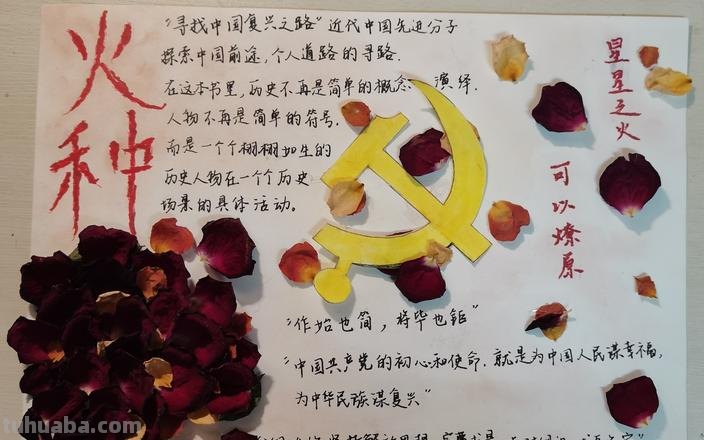 火种
"寻找中国复兴之路"近代中国先进分子
探索中国前途,个人道路的寻路.
在这本书里,历史不再是简单的概念、演绎.
人物不再是简单的符号.
而是一个个栩栩如生的
历史人物在一个个历史
场景的具体活动。
星星之火
可以燎原
"作始也简,将毕也钜"
"中国共产党的初心和使命.就是为中国人民谋幸福,
为中华民族谋复兴"
tuhuaba.com